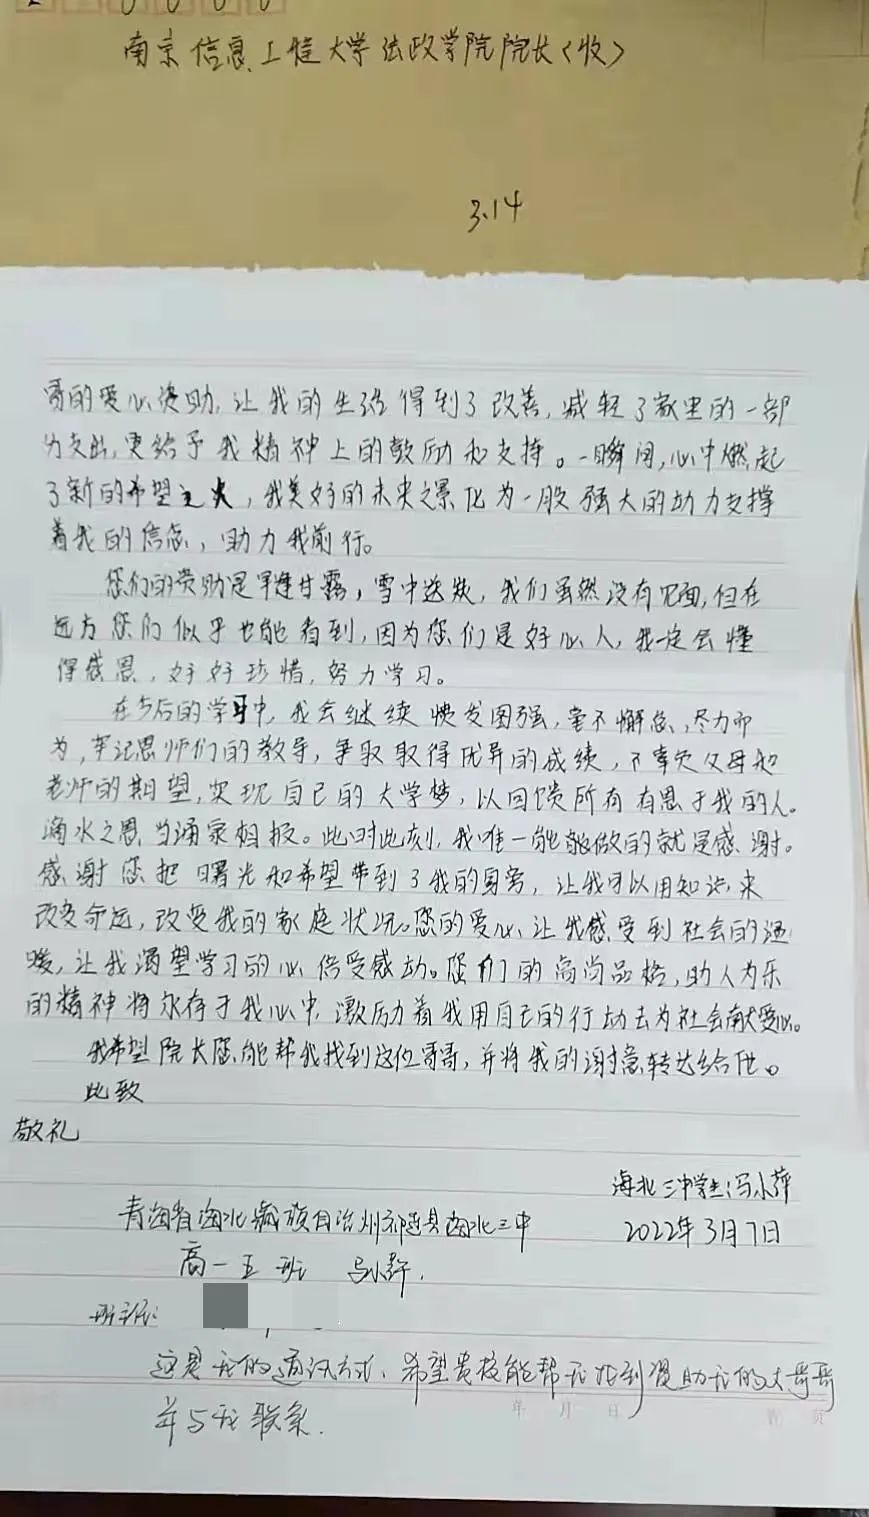 南京信息工程大学法政学院院长（收）
3.14
哥的爱心资助，让我的生活得到了改善，减轻了家里的一部
分支出，更给予我精神上的鼓励和支持。一瞬间，心中燃起
了新的希望之火，我美好的未来之景化为一股强大的动力支撑
着我的信念，助力我前行。
您们的资助是旱逢甘露，雪中送炭，我们虽然没有见面，但在
远方您们似乎也能看到，因为您们是好心人，我一定会懂
得感恩，好好珍惜，努力学习。
在今后的学习中，我会继续愤发图强，毫不懈怠，尽力而
为，牢记恩师们的教导，争取取得优异的成绩，不辜负父母和
老师的期望，实现自己的大学梦，以回馈所有有恩于我的人。
滴水之恩，当涌泉相报。此时此刻，我唯一能能做的就是感谢。
感谢您把曙光和希望带到了我的身旁，让我可以用知识来
改变命运，改变我的家庭状况。您的爱心，让我感受到社会的温
暖，让我渴望学习的心倍受感动。您们的高尚品格，助人为乐
的精神将永存于我心中，激励着我用自己的行动去为社会献爱心。
我希望院长您能帮我找到这位哥哥，并将我的谢意转达给他。
此致
敬礼
海北三中学生：冯小萍
青海省海北藏族自治州祁连县海北三中
2022年3月7日
高一五班
班主任：
这是我的通讯方式，希望贵校能帮我找到资助我的大哥哥
并与我联系.
年 月 日 第 页